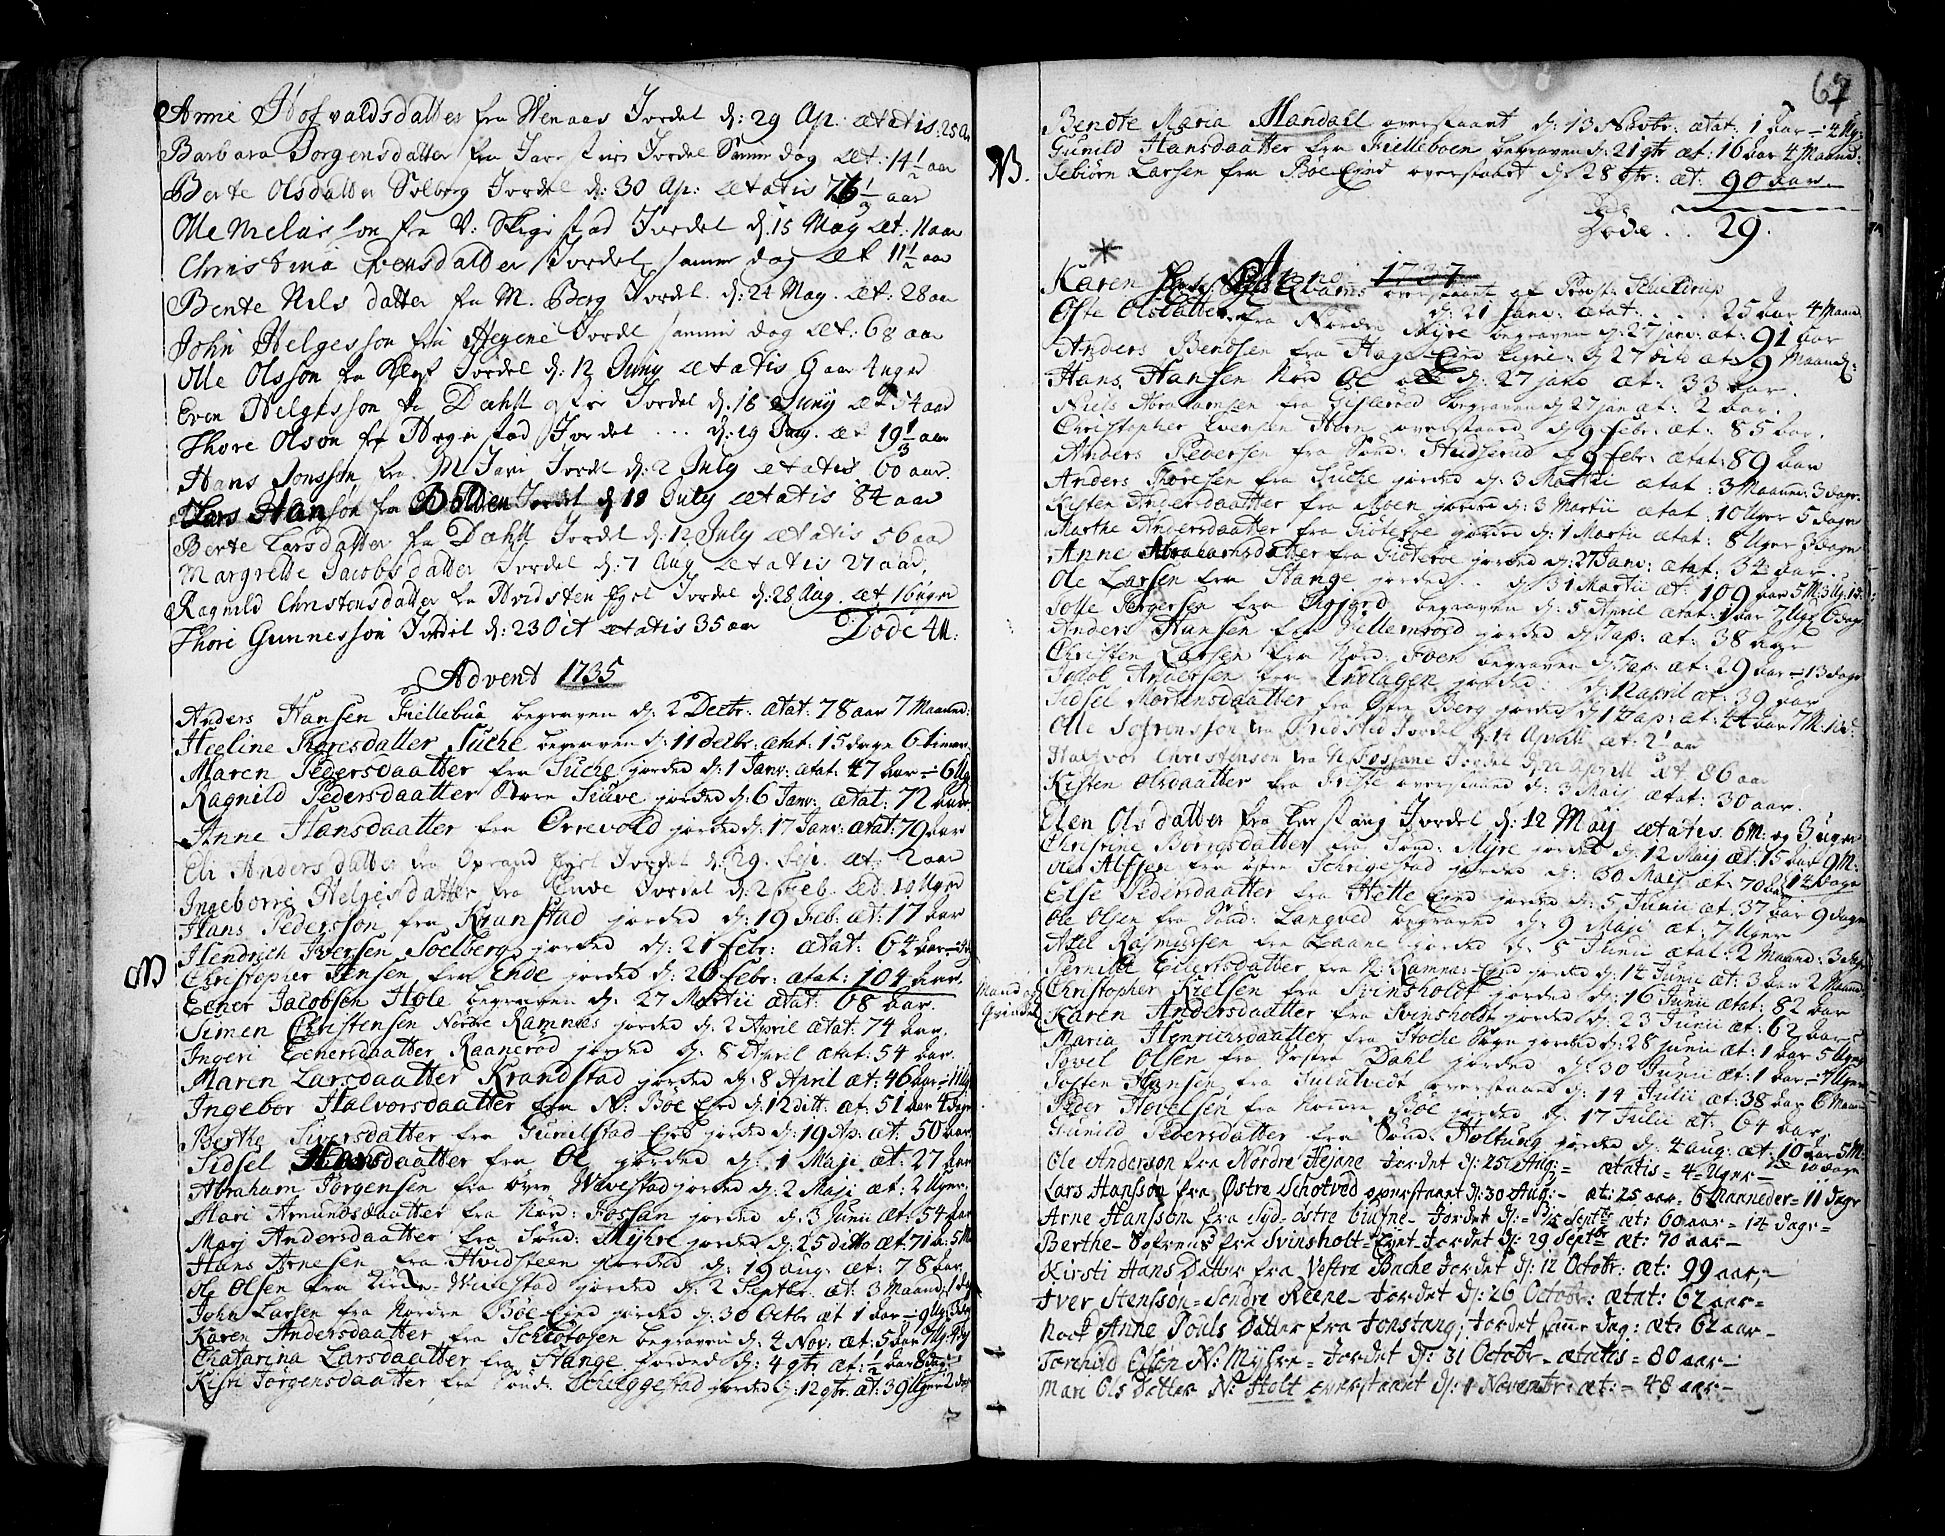 Anne Hofvaldsdatter fra Wenaas Jordet d: 29 Ap: ætatis: 25 a
Barbara Jørgensdatter fra Jare Jordet Samme dag æt: 14 1/2 aar
Berte Olsdatter Solberg Jordet d: 30 Ap: ætatis 76 1/3 aar
Ole Melais son fra V: Skigstad Jordet d: 15 May æt: 11 aar
Christina Evensdatter Jordet samme dag æt 11 1/2 aar
Bente Nils datter fra M. Berg Jordet d: 24 May æt: 28 aar
John Helgesson fra Hegene Jordet samme dag æt: 68 aar
Olle Olsson fra Jordet d: 12 Juny ætatis 9 aar 4 uger
Even Helgesson fra Dæhli østre Jordet d: 16 Juny æt 54 aar
Thore Olson fra Hegnstad Jordet ... d: 19 Juny æt 19 1/3 aar
Hans Jonsson fra M Jare Jordet d: 2 July ætatis 60 aar
Lars Hanson fra Bolden Jordet d 10 July ætatis 84 aar
Berte Larsdatter fra Dæhli Jordet d: 12 July ætatis 56 aar
Margrette Jacobsdatter Jordet d: 7 Aug ætatis 27 aar,
Ragnild Christensdatter fra Hvidsten Ejet Jordet d: 28 Aug. æt 16 uger
Thore Gunnesson Jordet d: 23 Oct ætatis 35 aar Døde 41:
Advent 1735
Anders Hansen Fiellebua begraven d: 2 Decbr: ætat: 78 aar 7 Maaned:
Heeline Thoresdatter Suche begraven d: 11 Decbr: ætat: 15 dage 6 timer
Maren Pedersdaatter fra Suche jorded d: 1 Janv: ætat: 47 aar ÷ 6 Ug
Ragnild Pedersdaatter Store Siuve jorded d: 6 Janv: ætat: 72 aar
Anne Hansdaatter fra Orrevold jorded d: 17 Janv: ætat: 79 aar
Eli Andersdatter fra Oprand Ejet Jordet d: 29. æt: 2 aar
Ingeborrig Helgesdatter fra Ende Jordet d: 2 Feb. æt: 10 Uger
Hans Pedersson fra Kranstad jorded d: 19 Feb: æt: 17 aar
Hendrich Iversen Soelberg jorded d: 21 Febr: ætat: 64 aar
NB Christopher Jensen fra Ende jorded d: 26 Febr: ætat: 104 aar.
Eener Jacobsen Hole begraven d: 27 Martii ætat: 68 aar.
Simen Christensen Nordre Ramnes jorded d: 2 April ætat: 74 aar.
Ingeri Eenersdaatter Raanerød jorded d: 8 April ætat: 54 aar.
Maren Larsdaatter Krandstad jorded d: 8 April æt: 46 aar ÷ 11 Ug
Ingebor Halvorsdaatter fra N: Bøe Ejed jorded d: 12 ditt. æt: 51 aar 4 dage
Berthe Siversdatter fra Gunilstad Ejed jorded d: 19 Ap: æt: 50 aar
Sidsel Hansdaatter fra Oe jorded d: 1 Maji æt: 27 aar
Abraham Jørgensen fra øvre Wivestad jorded d: 2 Maji æt: 2 Uger.
Mari Amundsdaatter fra Nør: Fossan jorded d: 3 Junii æt: 54 aar
Marj Andersdaatter fra Sønd: Myhre jorded d: 25 ditto æt: 71 a: 5 M
Hans Arnesen fra Hvidsteen jorded d: 19 aug: æt: 78 aar
Ole Olsen fra Wivestad jorded d: 2 Septbr. æt: 3 Maaned: 1 dag
John Larsen fra Nordre Bøe Ejed jorded d: 30 Octbr æt 1 aar ÷ 9 Ug 3 dag
Karen Andersdaatter fra Schiøtosen begraven d: 4 Nov: æt: 5 aar
Chatarina Larsdaatter fra Stange jorded d: 4 9br æt: 1/2 aar 8 dage
Kisti Jørgensdaatter fra Sønd: Scheggestad jorded d: 12 9br. æt: 39 Uger 2 dage
67
Bendte Maria Mandall overstaaet d: 13 Novbr: ætat: 1 aar ÷ 4 Ug:
Gunild Hansdaatter fra Fielleboen begraven d: 21 9br æt: 16 aar 4 Maaned:
NB. Sebiørn Larsen fra Bøe Ejed overstaaet d: 28 9br: æt: 90 aar.
Døde .. 29.
Anno 1737
Karen overstaaet af Provst Schieldrup
d: 21 janv: ætat: .... 25 aar 4 Maaned
Osle Olsdatter fra Nordre Myre begraven d: 27 janv: æt: 91 aar
Anders Bendsen fra Hage Ejed d: 27 ditto æt: 9 Maaned:
Hans Hansen Nord Oe d: 27 janv æt: 33 aar.
Niels Abrahamsen fra Gislerød begraven d 27 jan æt: 2 aar.
Christopher Evensen Horn overstaaed d 9 Febr: æt: 85 aar.
Anders Pedersen fra Sønd: Hudserud d 9 Febr: ætat: 89 aar
Anders Thoresen fra Suche jorded d: 3 Martii ætat: 3 Maaned: 3 dage
Kisten Andersdaatter fra Moen jorded d: 3 Martii ætat: 10 Uger 5 dage
Marthe Andersdaatter fra Giøterøe jorded d: 1 Martii ætat: 8 Uger 3 dage
Anne Abrahamsdatter fra Giøterøe jorded d: 27 Janv: ætat: 34 aar.
Ole Larsen fra Stange jorded .. d: 31 Martii æt: 109 aar 5 M: 3 Ug: 1 d:
Tolle Torgersen fra begraven d: 5 April ætat: 1 aar 7 Ug: 6 dage
Anders Hansen fra Villemsrød jorded d: 7 ap: æt: 38 aar
Christen Larsen fra Nord: Foen begraven d: 7 ap: æt: 29 aar ÷ 13 dage
Jacob Andersen fra Enelagen jorded d: 12 april æt: 39 aar
Sidsel Mortensdaatter fra Østre Berg jorded d: 14 ap: æt: 44 aar 7 M: 1 d:
Olle Sofrensson fra Fredsted Jordet d: 14 Aprill æt: 2 1/2 aar
Halvor Christenson fra N: Fossane Jordet d: 22 Aprill æt 86 aar
Kisten Olsdaatter fra overstaaed d: 3 Maij ætat: 30 aar.
Elen Ols datter fra Herstang Jordet d: 12 May ætatis. 6 M: og 3 uger
Christine Børrigsdatter fra Sønd: Myre jorded d: 12 Maij æt: 15 aar 9 M:
Ole Alfsen fra østre Schrigestad jorded d: 30 Maij æt: 70 aar 14 dage
Else Pedersdaatter fra Hette Ejed jorded d: 5 Junii æt: 37 aar 9 dage
Ole Olsen fra Sønd: Langved begraved d: 9 Maji æt: 7 Uger
Axel Rasmussen fra Laane jorded d: 8 Junii ætat: 2 Maaned: 3 dage
Pernille Eilertsdaatter fra N: Ramnes Ejed jorded d: 14 Junii æt: 3 aar 2 Maaned:
Mand og Christopher Kielsen fra Svinsholdt jorded d: 16 Junii ætat: 82 aar
Karen Andersdaatter fra Svinsholdt jorded d: 23 Junii æt: 62 aar
Maria Henrichsdaatter fra Stoche Sogn jorded d: 28 Junii æt: 1 aar 5 Uger
Povel Olsen fra Vestre Dahl jorded d: 30 Junii æt: 1 aar ÷ 7 Uger
Tosten Hansen fra overstaaed d: 14 Julii æt: 38 aar 6 Maaned
Peder Hovelsen fra Nordre Bøe jorded d: 17 Julii æt: 64 aar
Gunild Pedersdatter fra Sønd: Holtung jorded d: 4 aug: æt: 10 aar 5 M:
Ole Anderson fra Nordre Hejane Jordet d: 25 Aug:= ætatis = 4 = Uger = 10 dage
Lars Hansson fra Østre Schotved overstaaet d: 30 Aug:- æt: 25 aar 6 Maaneder = 11 dage
Arne Hansson fra Syd-østre Jordet d: = 15 Septbr æt: 60 aar = 14 dage =
Berthe- Sofrens fra Svinsholt = Ejet Jordet d: 29 Septbr æt: 70 aar-
Kirsti Hans Datter fra Vestre Bache Jordet d: 12 Octobr: æt: 99 aar,-
Iver Stensson = Sondre Reene- Jordet d: 26 Octobr: ætat: 62 aar=
Nock Anne Pouls Datter fra Jonstang, Jordet samme dag: æt: 62 aar-
Torehild Olson N: Myhre = Jordet d: 31 Octobr- ætatis = 80 aar-
Mari Ols Datter N: Holt overstaaet d: 1 Novembr: æt: - 48 aar-